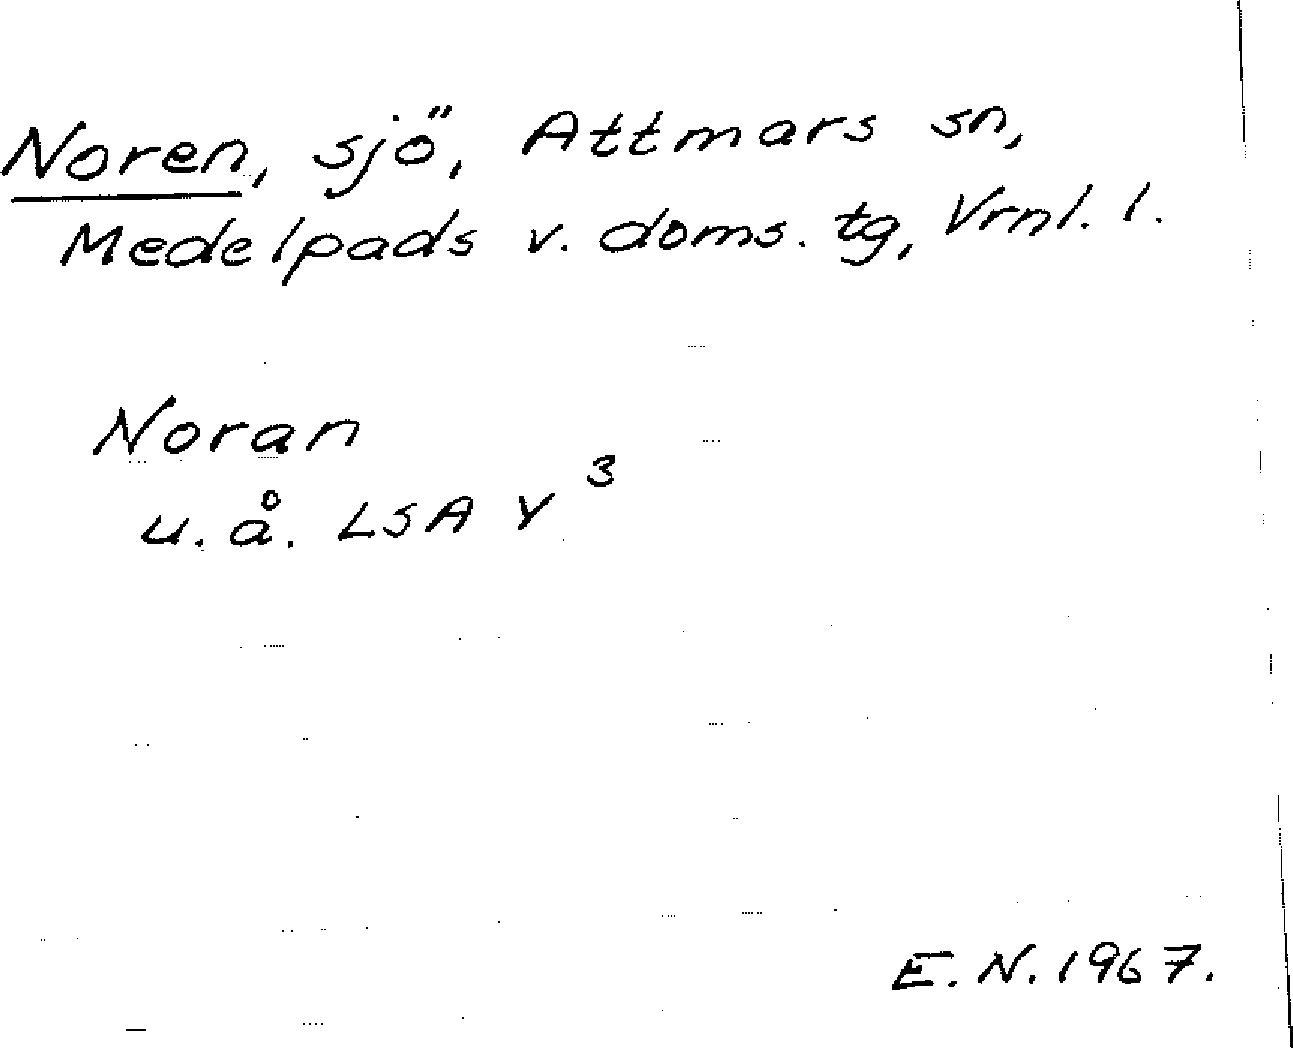 Noren, sjö, Attmars sn,
Medelpads v. doms. tg, Vrnl. l.
Noran
u. å. LSA Y 3
E. N. 1967.